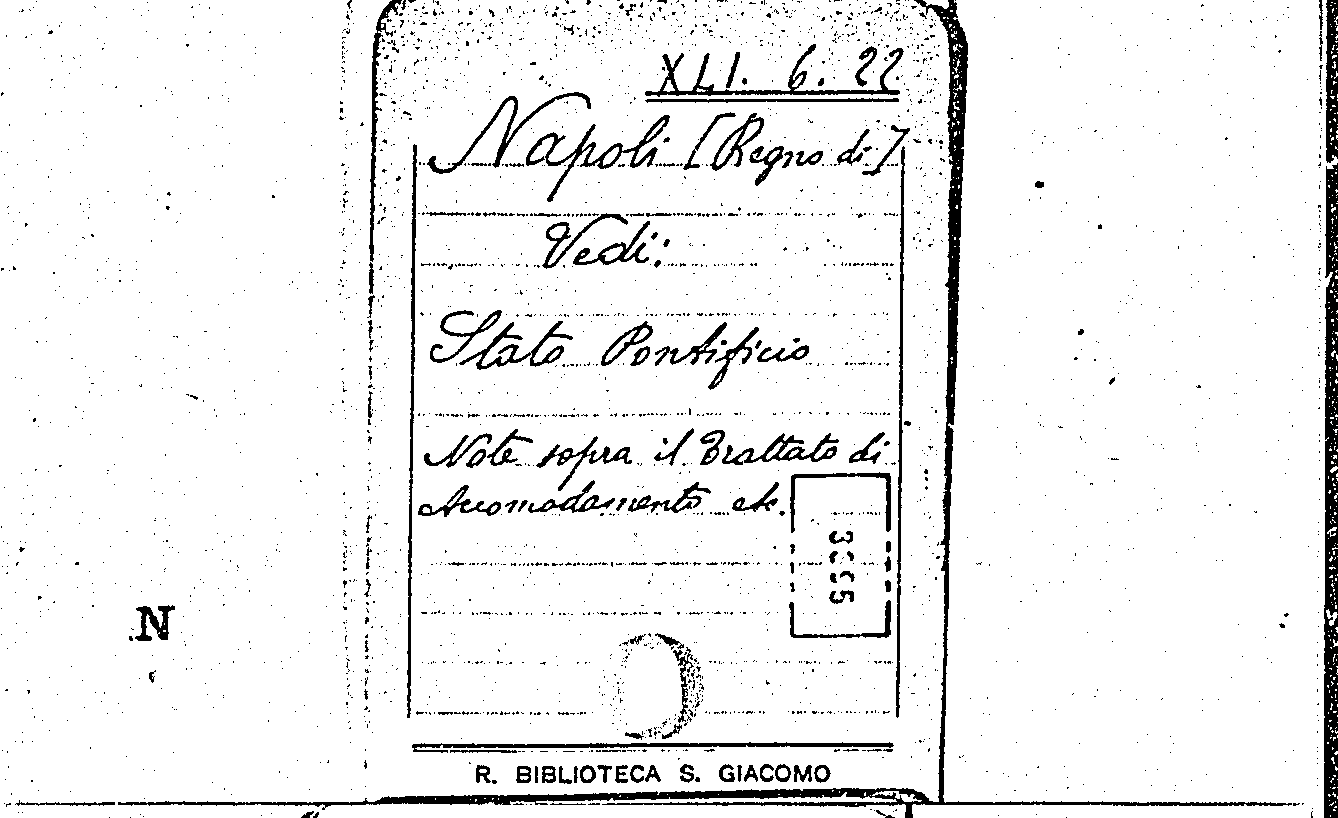 XLI. 6. 22
Napoli [Regno di]
Vedi:
Stato Pontificio
Note sopra il Trattato di
Accomodamento etc.
N
R. BIBLIOTECA S. GIACOMO